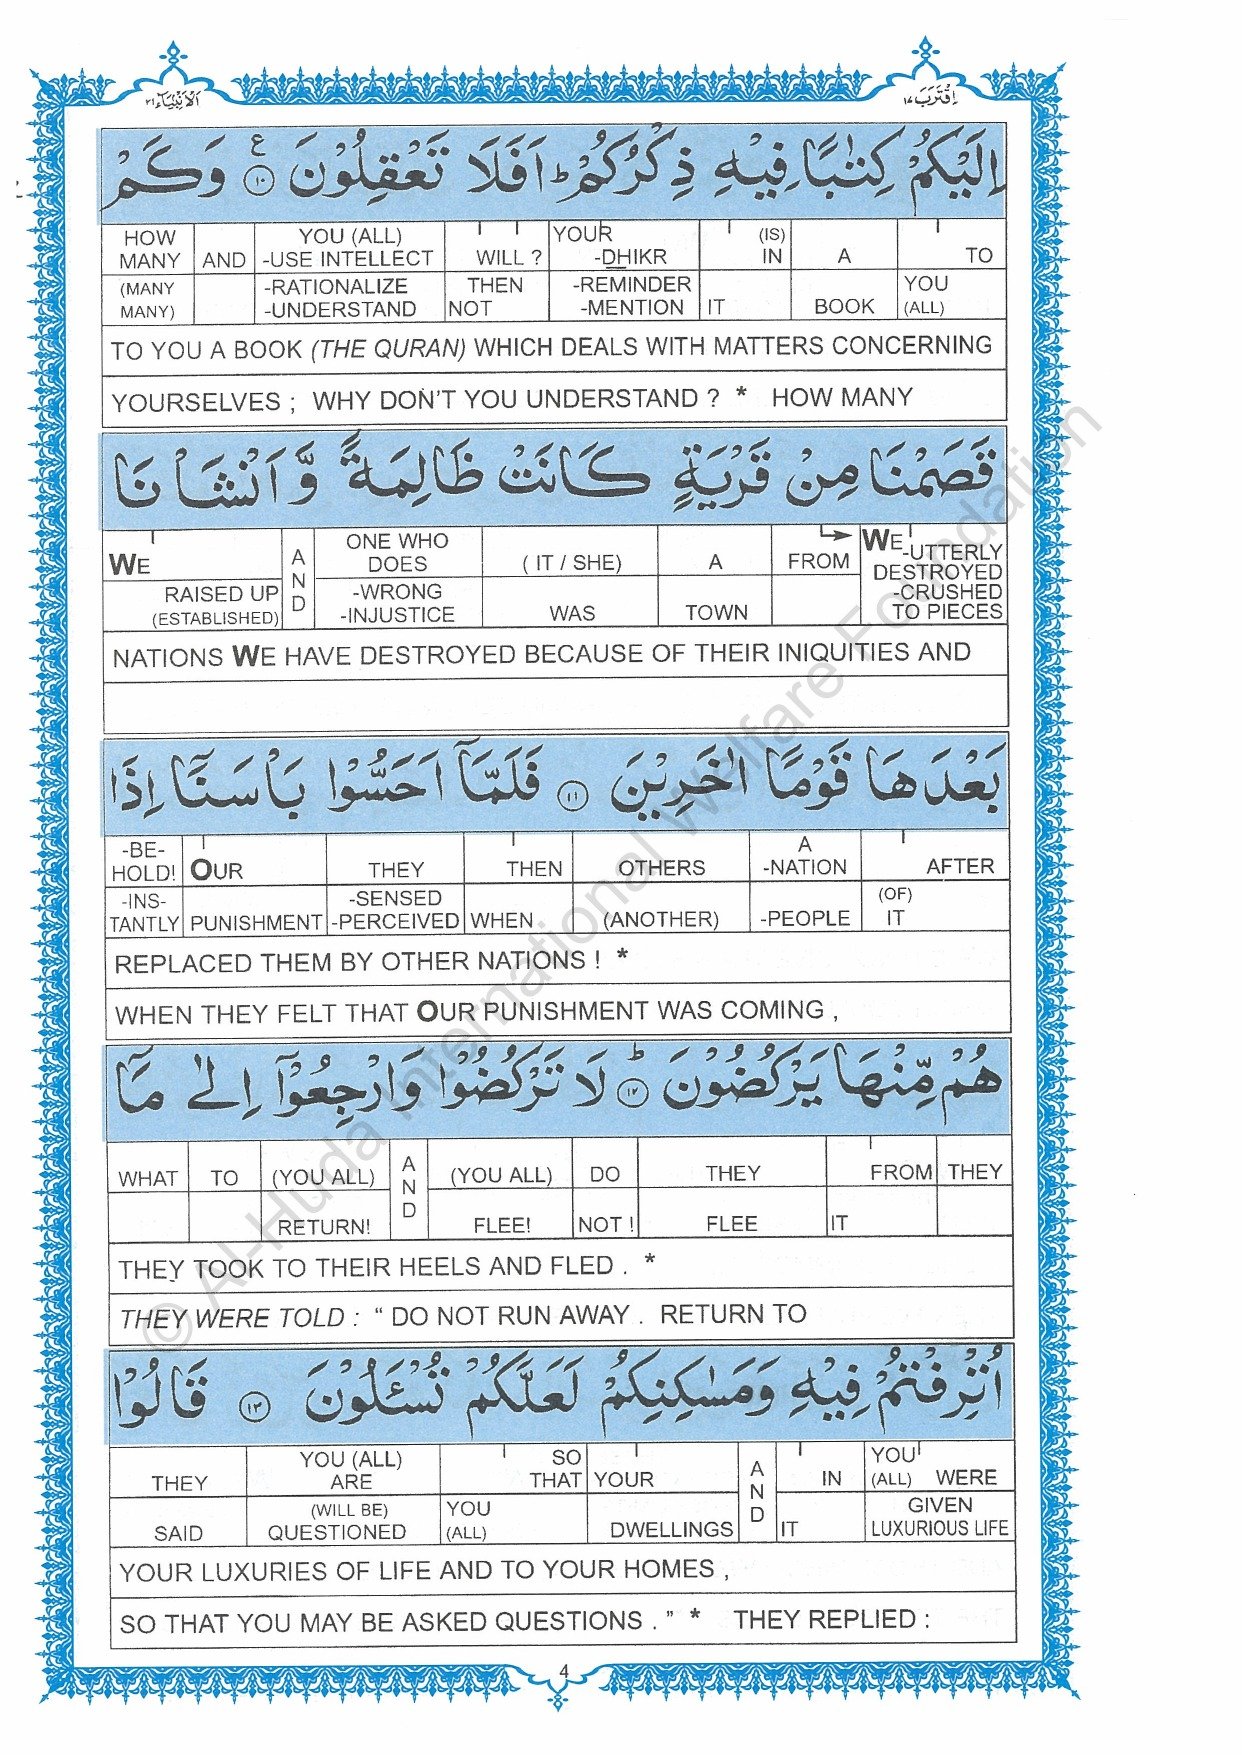 الانبياء ٢١
اقترب ١٧
اِلَيْكُمْ كِتٰبًا فِيْهِ ذِكْرُكُمْ ؕ اَفَلَا تَعْقِلُوْنَ ع ١٠ وَكَمْ
HOW MANY AND YOU (ALL) -USE INTELLECT WILL ? YOUR -DHIKR (IS) IN A TO
(MANY MANY) -RATIONALIZE -UNDERSTAND THEN NOT -REMINDER -MENTION IT BOOK YOU (ALL)
TO YOU A BOOK (THE QURAN) WHICH DEALS WITH MATTERS CONCERNING
YOURSELVES ; WHY DON'T YOU UNDERSTAND ? * HOW MANY
قَصَمْنَا مِنْ قَرْيَةٍ كَانَتْ ظَالِمَةً وَّاَنْشَاْنَا
WE AND ONE WHO DOES ( IT / SHE) A FROM WE -UTTERLY DESTROYED
RAISED UP (ESTABLISHED) -WRONG -INJUSTICE WAS TOWN -CRUSHED TO PIECES
NATIONS WE HAVE DESTROYED BECAUSE OF THEIR INIQUITIES AND
بَعْدَهَا قَوْمًا اٰخَرِيْنَ ١١ فَلَمَّآ اَحَسُّوْا بَاْسَنَآ اِذَا
-BE- HOLD! OUR THEY THEN OTHERS A -NATION AFTER
-INS- TANTLY PUNISHMENT -SENSED -PERCEIVED WHEN (ANOTHER) -PEOPLE (OF) IT
REPLACED THEM BY OTHER NATIONS ! *
WHEN THEY FELT THAT OUR PUNISHMENT WAS COMING ,
هُمْ مِّنْهَا يَرْكُضُوْنَ ؕ ١٢ لَا تَرْكُضُوْا وَارْجِعُوْٓا اِلٰى مَآ
WHAT TO (YOU ALL) AND (YOU ALL) DO THEY FROM THEY
RETURN! FLEE! NOT ! FLEE IT
THEY TOOK TO THEIR HEELS AND FLED . *
THEY WERE TOLD : “ DO NOT RUN AWAY . RETURN TO
اُتْرِفْتُمْ فِيْهِ وَمَسٰكِنِكُمْ لَعَلَّكُمْ تُسْـَٔلُوْنَ ١٣ قَالُوْا
THEY YOU (ALL) ARE SO THAT YOUR AND IN YOU (ALL) WERE
SAID (WILL BE) QUESTIONED YOU (ALL) DWELLINGS IT GIVEN LUXURIOUS LIFE
YOUR LUXURIES OF LIFE AND TO YOUR HOMES ,
SO THAT YOU MAY BE ASKED QUESTIONS . ” * THEY REPLIED :
4
© Al-Huda International Welfare Foundation